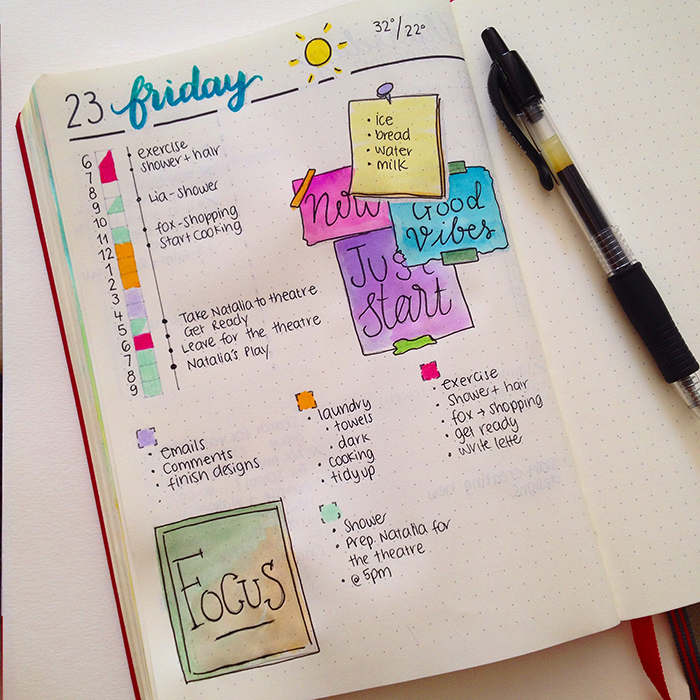 23 friday
32°/22°
6
7
8
9
10
11
12
1
2
3
4
5
6
7
8
9
exercise
shower + hair
Lia - shower
fox - shopping
Start cooking
Take Natalia to theatre
Get Ready
Leave for the theatre
Natalia's Play
• ice
• bread
• water
• milk
Now
Good
Vibes
Just
Start
• emails
• Comments
• finish designs
• laundry
• towels
• dark
• cooking
• tidy up
• exercise
• shower + hair
• fox → shopping
• get ready
• write letter
• Shower
• Prep. Natalia for
the theatre
• @ 5pm
Focus